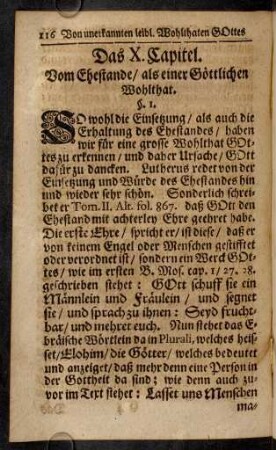 116 Von unerkannten leibl. Wohlthaten GOttes
Das X. Capitel.
Vom Ehestande/ als einer Göttlichen
Wohlthat.
§. 1.
SO wohl die Einsetzung/ als auch die
Erhaltung des Ehestandes/ haben
wir für eine grosse Wohlthat GOt-
tes zu erkennen/ und daher Ursache/ GOtt
dafür zu dancken. Lutherus redet von der
Einsetzung und Würde des Ehestandes hin
und wieder sehr schön. Sonderlich schrei-
bet er Tom. II, Alt. fol. 867. daß GOtt den
Ehestand mit achterley Ehre geehret habe.
Die erste Ehre/ spricht er/ ist diese/ daß er
von keinem Engel oder Menschen gestifftet
oder verordnet ist/ sondern ein Werck GOt-
tes/ wie im ersten B. Mos. cap. 1/ 27. 28.
geschrieben stehet: GOtt schuff sie ein
Männlein und Fräulein/ und segnet
sie/ und sprach zu ihnen: Seyd frucht-
bar/ und mehret euch. Nun stehet das E-
bräische Wörtlein da in Plurali, welches heis-
set/ Elohim/ die Götter/ welches bedeutet
und anzeiget/ daß mehr denn eine Person in
der Gottheit da sind; wie denn auch zu-
vor im Text stehet: Lasset uns Menschen
ma-